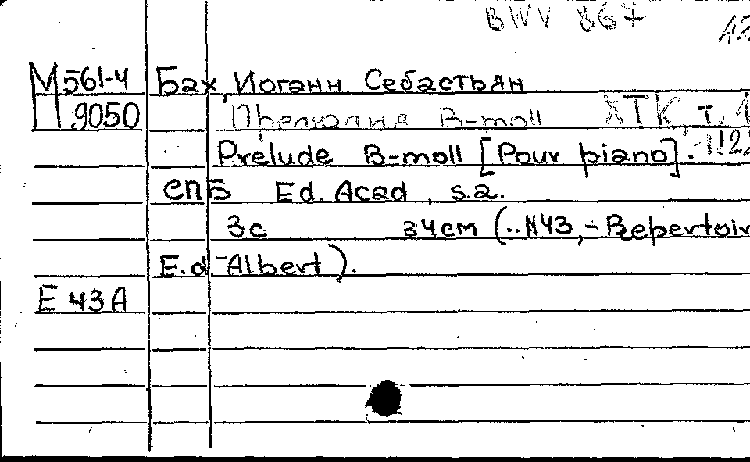 BWV 867
М 561-4 Бах, Иоганн Себастьян
П 9050 Прелюдия B-moll ХТК, т. 1
Prelude B-moll [Pour piano].
СПБ Ed. Acad, s.a.
3с 34см (..N43, - Repertoir
E. d'Albert).
E 43A